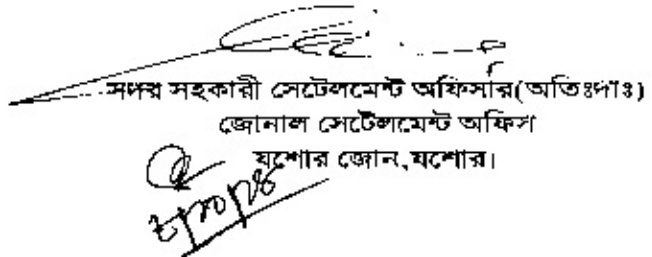 সদর সহকারী সেটেলমেন্ট অফিসার(অতিঃদাঃ)
জোনাল সেটেলমেন্ট অফিস
যশোর জোন,যশোর।